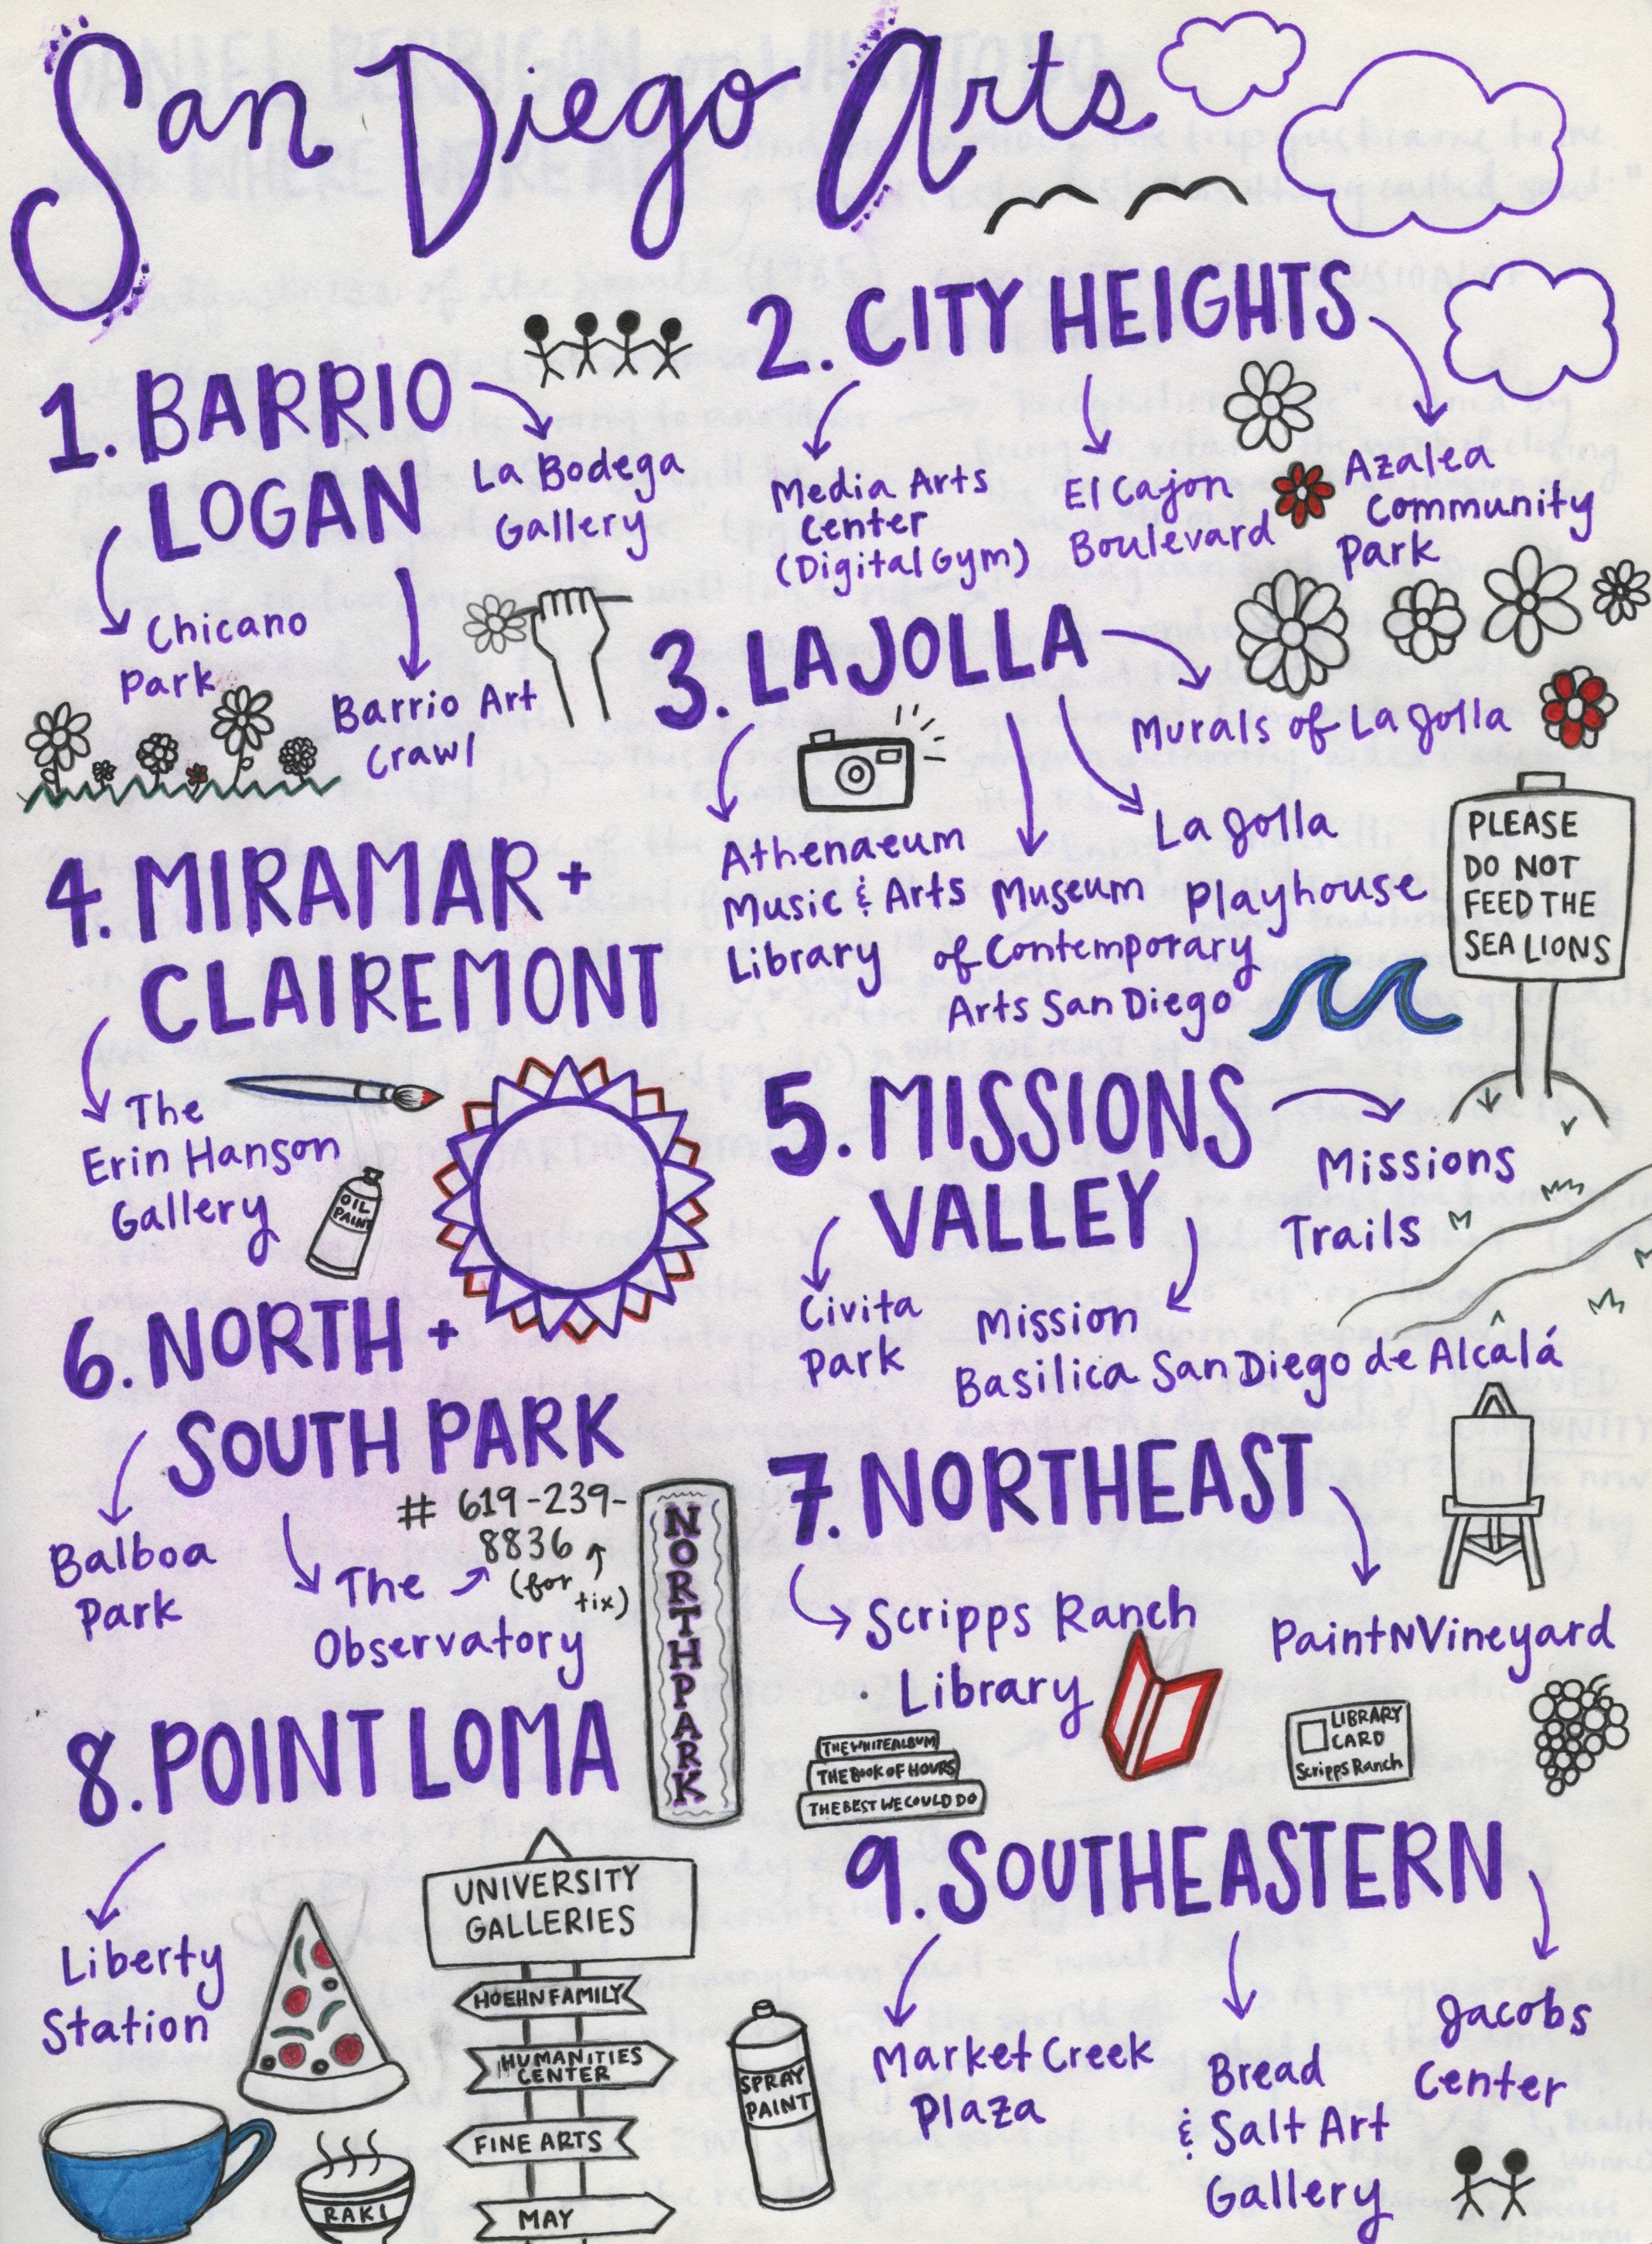 San Diego Arts
1. BARRIO
LOGAN
La Bodega
Gallery
Chicano
Park
Barrio Art
Crawl
2. CITY HEIGHTS
Media Arts
Center
(Digital Gym)
El Cajon
Boulevard
Azalea
Community
Park
3. LA JOLLA
Murals of La Jolla
Athenaeum
Music & Arts
Library
Museum
of Contemporary
Arts San Diego
La Jolla
Playhouse
PLEASE
DO NOT
FEED THE
SEA LIONS
4. MIRAMAR +
CLAIREMONT
The
Erin Hanson
Gallery
OIL
PAINT
5. MISSIONS
VALLEY
Missions
Trails
Civita
Park
Mission
Basilica San Diego de Alcalá
6. NORTH +
SOUTH PARK
Balboa
Park
# 619-239-
8836
(for
tix)
The
Observatory
NORTH PARK
7. NORTHEAST
Scripps Ranch
Library
PaintNVineyard
THE WHITE ALBUM
THE BOOK OF HOURS
THE BEST WE COULD DO
LIBRARY
CARD
Scripps Ranch
8. POINT LOMA
Liberty
Station
UNIVERSITY
GALLERIES
HOEHN FAMILY
HUMANITIES
CENTER
FINE ARTS
MAY
RAKI
SPRAY
PAINT
9. SOUTHEASTERN
Market Creek
Plaza
Bread
& Salt Art
Gallery
Jacobs
Center